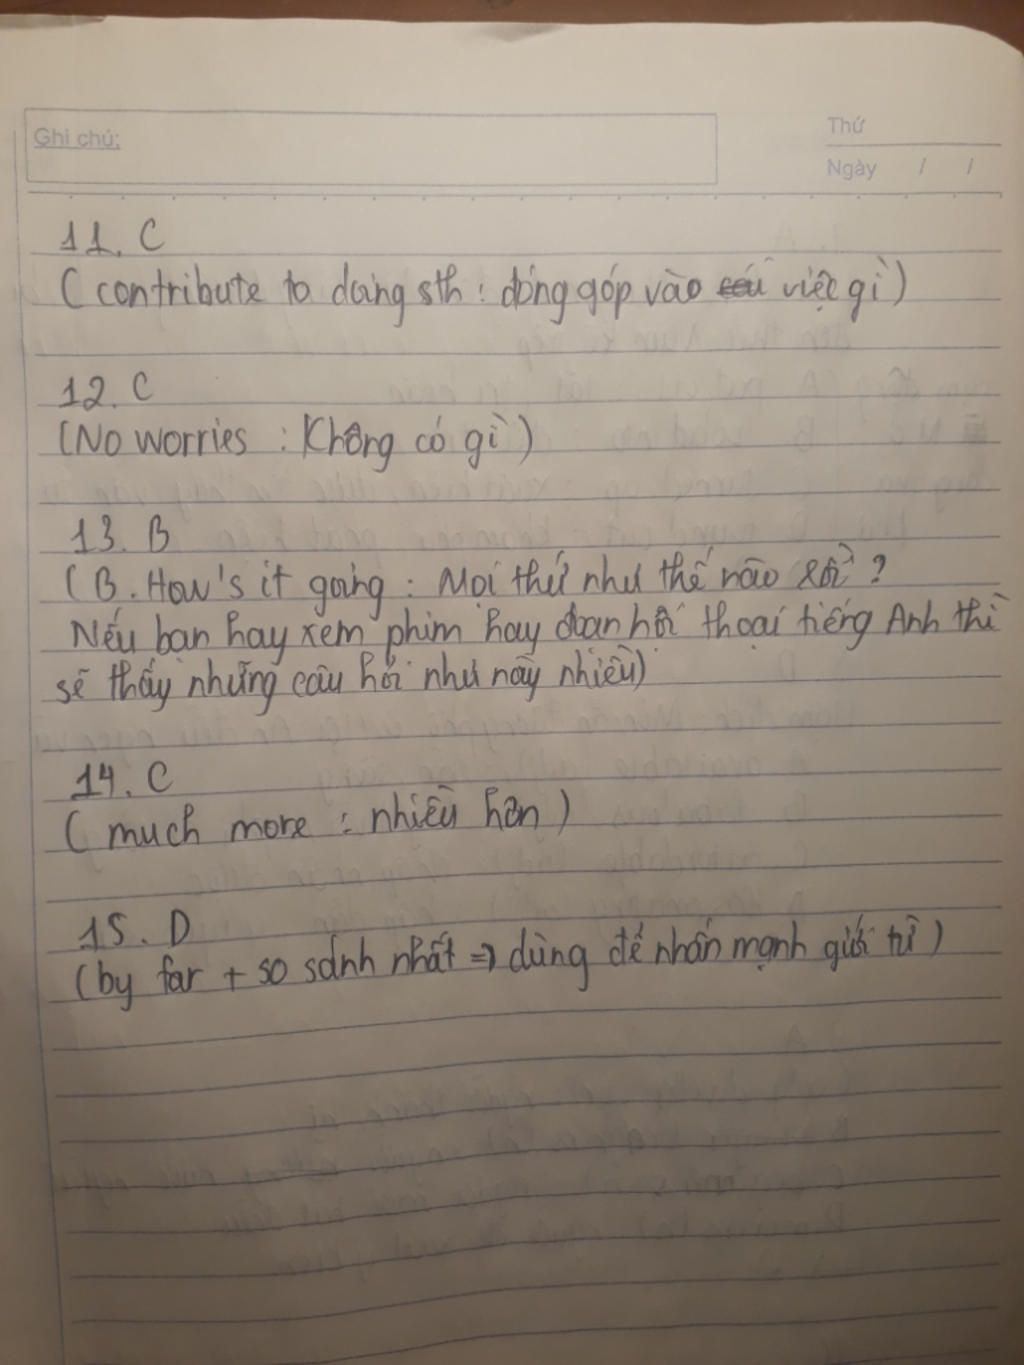 Ghi chú:
Thứ
Ngày / /
11. C
(contribute to doing sth : đóng góp vào việc gì)
12. C
(No worries : Không có gì)
13. B
(B. How's it going : Mọi thứ như thế nào rồi ?
Nếu bạn hay xem phim hay đoạn hội thoại tiếng Anh thì
sẽ thấy những câu hỏi như này nhiều)
14. C
(much more : nhiều hơn)
15. D
(by far + so sánh nhất => dùng để nhấn mạnh giới từ)